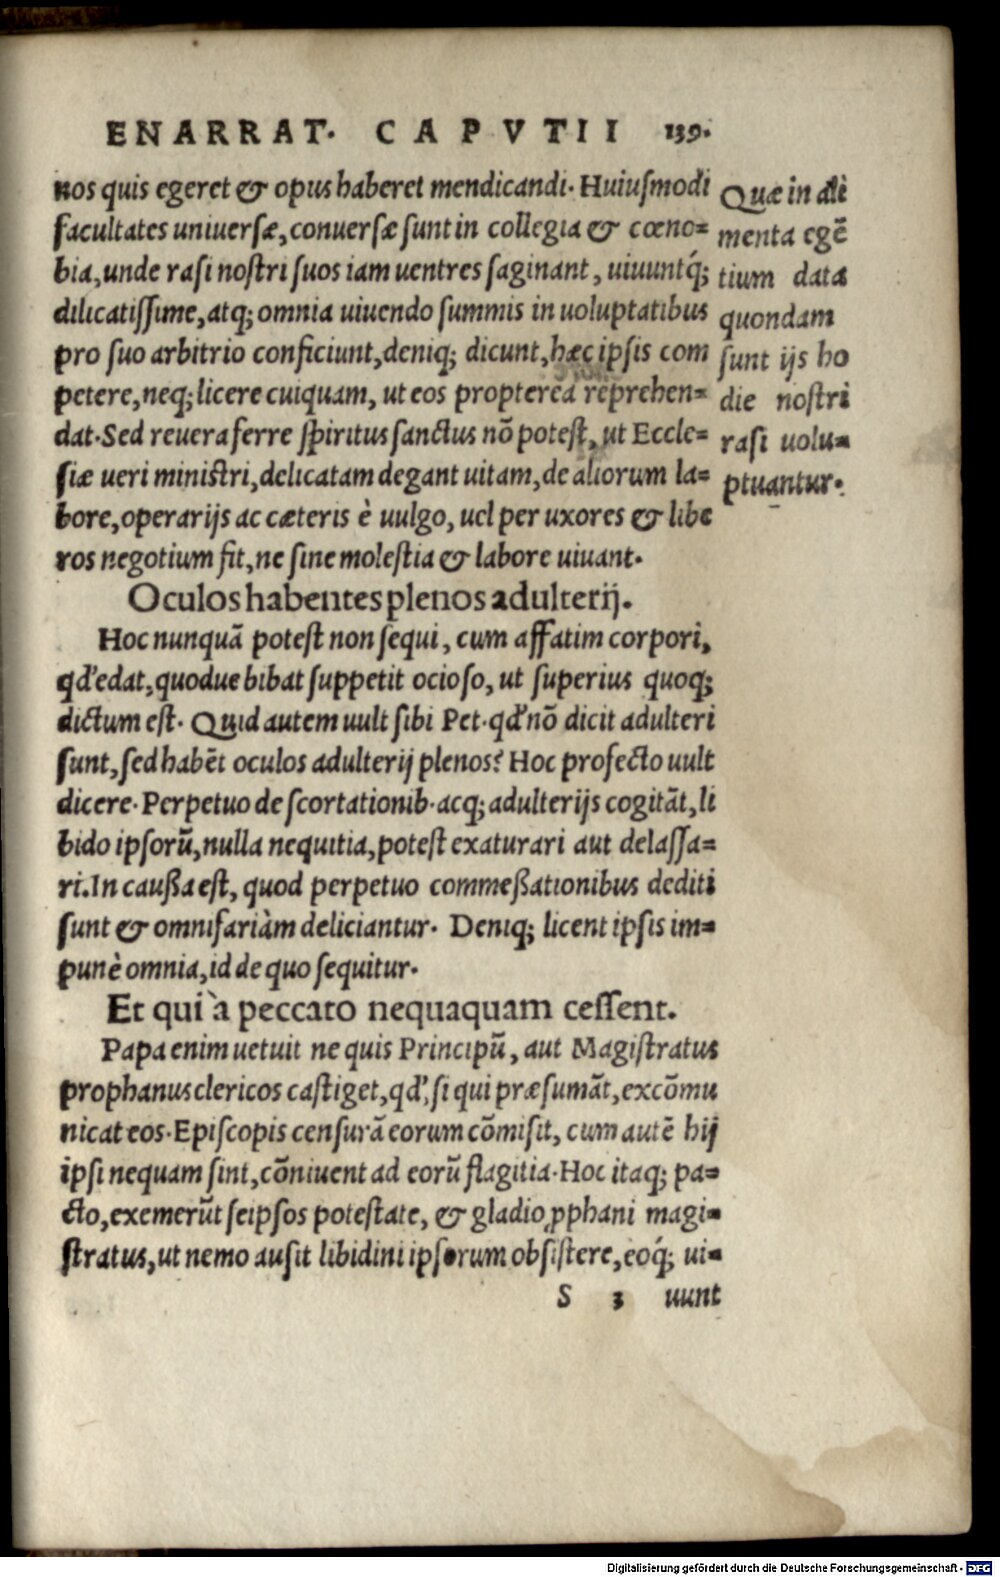 ENARRAT. CAPVT II 139.
nos quis egeret & opus haberet mendicandi. Huiuſmodi
facultates uniuerſæ, conuerſæ ſunt in collegia & cœno=
bia, unde raſi noſtri ſuos iam uentres ſaginant, uiuuntq́;
dilicatiſſime, atq; omnia uiuendo ſummis in uoluptatibus
pro ſuo arbitrio conficiunt, deniq; dicunt, hæc ipſis com
petere, neq; licere cuiquam, ut eos propterea reprehen=
dat. Sed reuera ferre ſpiritus ſanctus nō poteſt, ut Eccle=
ſiæ ueri miniſtri, delicatam degant uitam, de aliorum la=
bore, operarijs ac cæteris è uulgo, uel per uxores & libe
ros negotium fit, ne ſine moleſtia & labore uiuant.
Quæ in ali
menta egē
tium data
quondam
ſunt ijs ho
die noſtri
raſi uolu=
ptuantur.
Oculos habentes plenos adulterij.
Hoc nunquā poteſt non ſequi, cum affatim corpori,
qđ edat, quodue bibat ſuppetit ocioſo, ut ſuperius quoq;
dictum eſt. Quid autem uult ſibi Pet. qđ nō dicit adulteri
ſunt, ſed habēt oculos adulterij plenos? Hoc profecto uult
dicere. Perpetuo de ſcortationib. acq; adulterijs cogitāt, li
bido ipſorū, nulla nequitia, poteſt exaturari aut delaſſa=
ri. In cauſsa eſt, quod perpetuo commeſsationibus dediti
ſunt & omnifariàm deliciantur. Deniq; licent ipſis im=
punè omnia, id de quo ſequitur.
Et qui à peccato nequaquam ceſſent.
Papa enim uetuit ne quis Principū, aut Magiſtratus
prophanus clericos caſtiget, qđ, ſi qui præſumāt, excōmu
nicat eos. Epiſcopis cenſurā eorum cōmiſit, cum autē hij
ipſi nequam ſint, cōniuent ad eorū flagitia. Hoc itaq; pa=
cto, exemerūt ſeipſos poteſtate, & gladio ꝓphani magi=
ſtratus, ut nemo auſit libidini ipſorum obſiſtere, eoq́; ui=
S 3 uunt
Digitalisierung gefördert durch die Deutsche Forschungsgemeinschaft - DFG